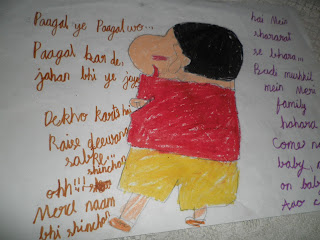 Paagal ye Paagal wo...
Paagal kar de.
jahan bhi ye jaye
Dekho karta hai
Kaise deewana
sabko...
shinchan
ohh!!!
Mera naam
bhi shinchan
hai Mein
shararat
se bhara...
Badi mushkil
mein meri
family
bahara
Comes na
baby,
on bab
Aao c